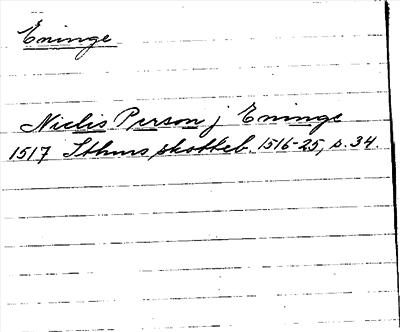 Eninge
Niclis Person j Eninge
1517 Sthms skotteb. 1516-25, s. 34